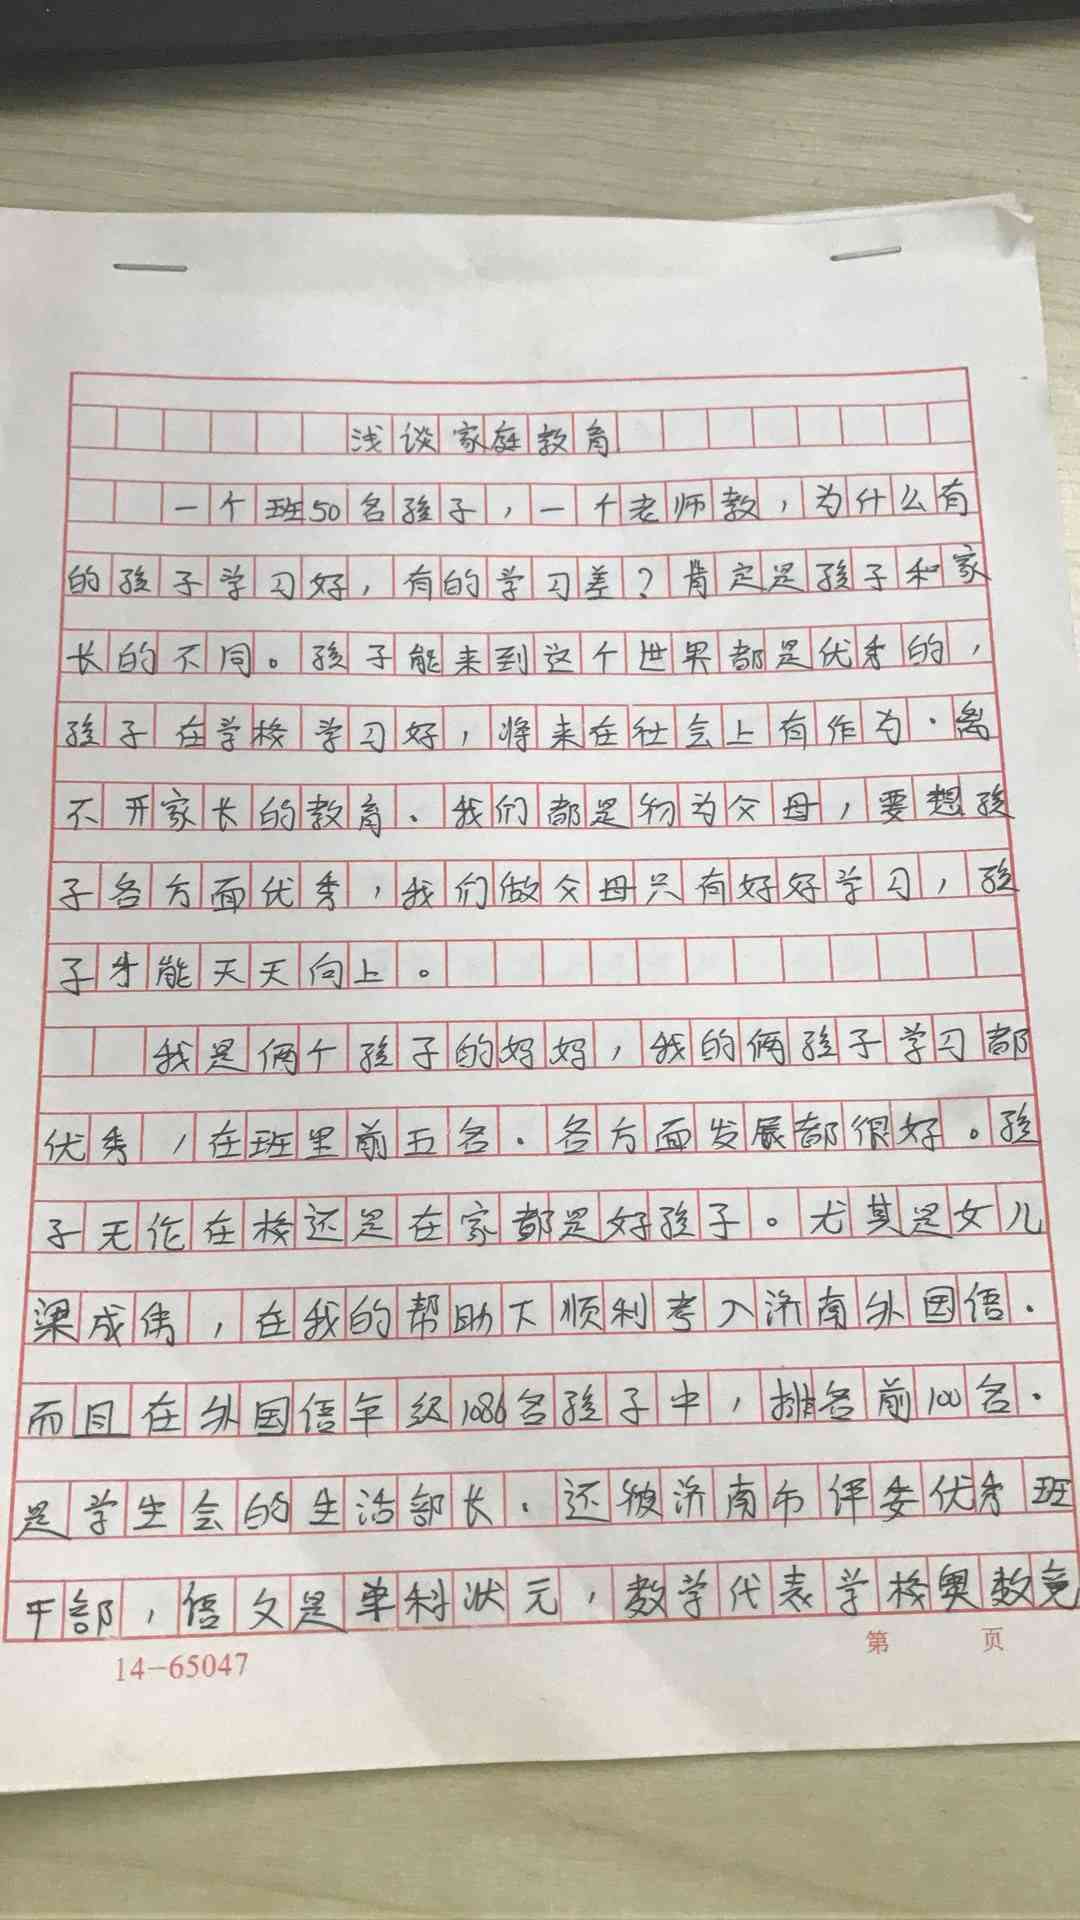 浅谈家庭教育
一个班50名孩子,一个老师教,为什么有
的孩子学习好,有的学习差?肯定是孩子和家
长的不同。孩子能来到这个世界都是优秀的,
孩子在学校学习好,将来在社会上有作为.离
不开家长的教育.我们都是初为父母,要想孩
子各方面优秀,我们做父母只有好好学习,孩
子才能天天向上。
我是俩个孩子的妈妈,我的俩孩子学习都
优秀,在班里前五名.各方面发展都很好。孩
子无论在校还是在家都是好孩子。尤其是女儿
梁成倩,在我的帮助下顺利考入济南外国语.
而且在外国语年级1086名孩子中,排名前100名.
是学生会的生活部长.还被济南市评委优秀班
干部,语文是单科状元,数学代表学校奥数竞
14-65047
第 页